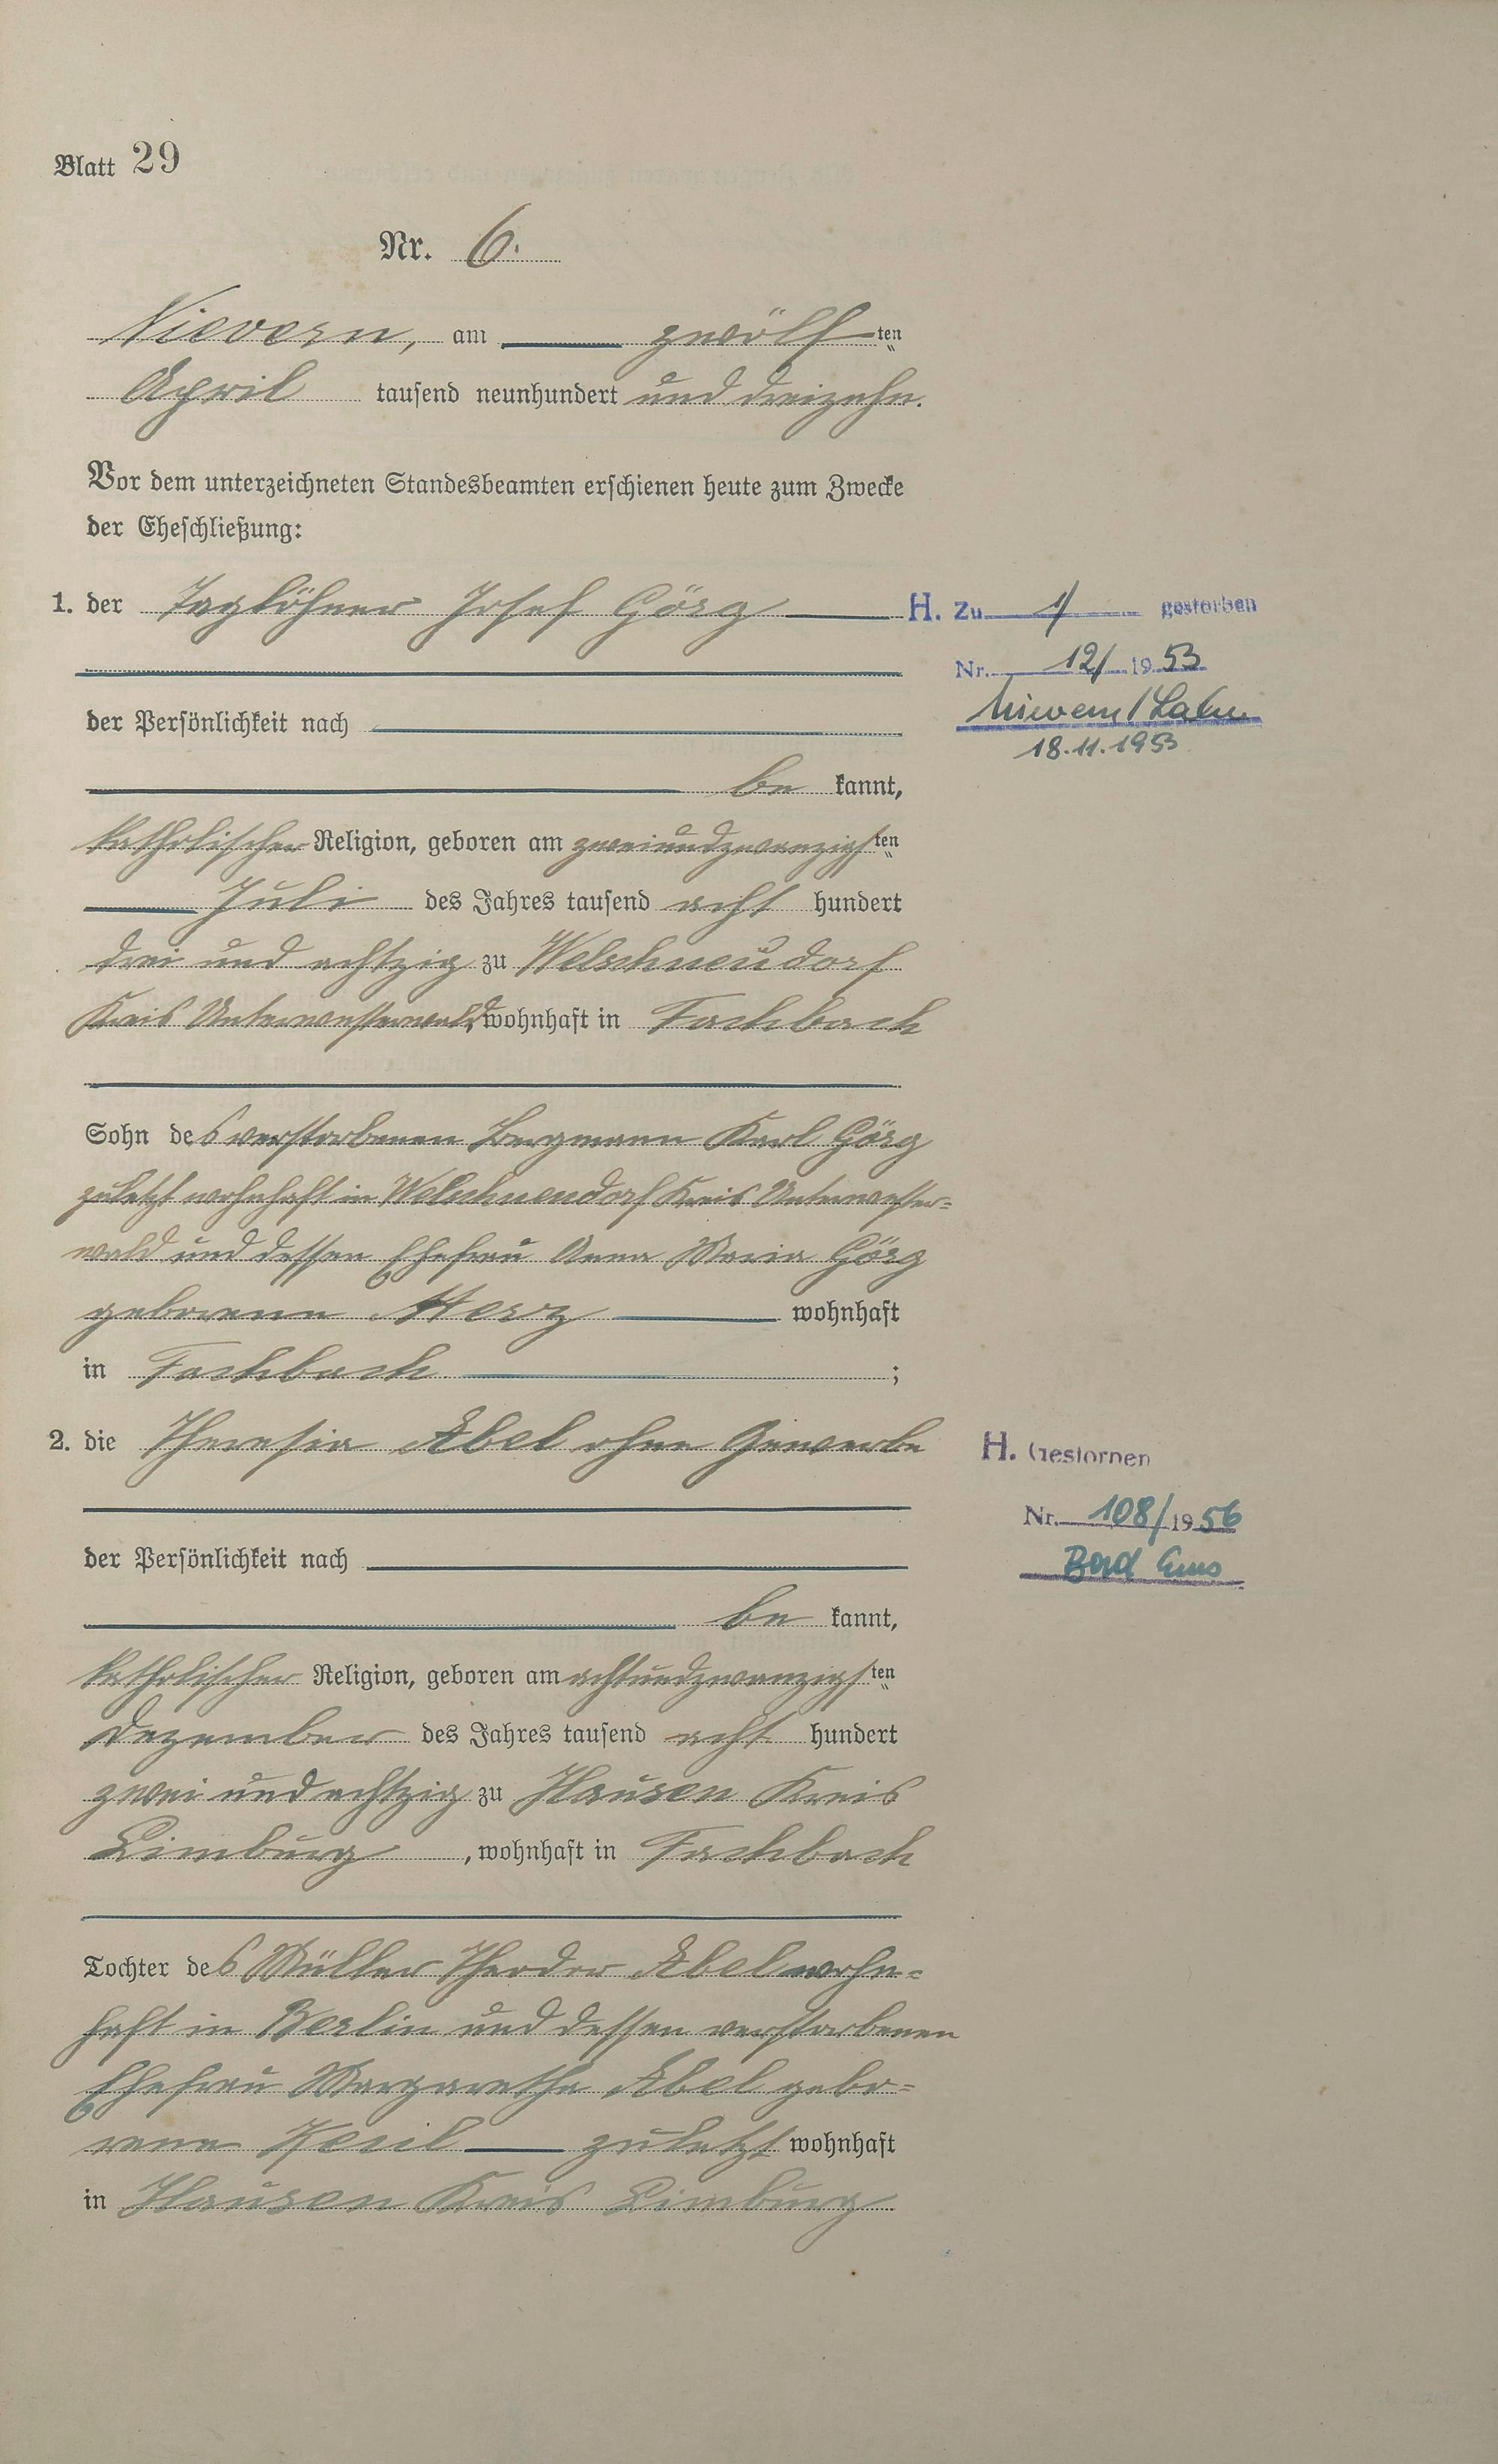 Blatt 29
Nr. 6.
Nievern, am zwölf ten
April tausend neunhundert und dreizehn.
Vor dem unterzeichneten Standesbeamten erschienen heute zum Zwecke
der Eheschließung:
1. der Taglöhner Josef Görg
H. Zu 1) gestorben
Nr. 12/ 1953
Nievern/Lahn
18.11.1953
der Persönlichkeit nach
be kannt,
katholischer Religion, geboren am zweiundzwanzigsten
Juli des Jahres tausend acht hundert
drei und achtzig zu Welschneudorf
Kreis Unterwesterwald, wohnhaft in Fachbach
Sohn des verstorbenen Bergmann Karl Görg
zuletzt wohnhaft in Welschneudorf Kreis Unterwester-
wald und dessen Ehefrau Anna Maria Görg
geborenen Herz wohnhaft
in Fachbach ;
2. die Theresia Abel ohne Gewerbe
H. Gestorben
Nr. 108/1956
Bad Ems
der Persönlichkeit nach
be kannt,
katholischer Religion, geboren am achtundzwanzigsten
Dezember des Jahres tausend acht hundert
zwei und achtzig zu Hausen Kreis
Limburg , wohnhaft in Fachbach
Tochter des Müller Theodor Abel wohn-
haft in Berlin und dessen verstorbenen
Ehefrau Margarethe Abel gebo-
rene zuletzt wohnhaft
in Hausen Kreis Limburg